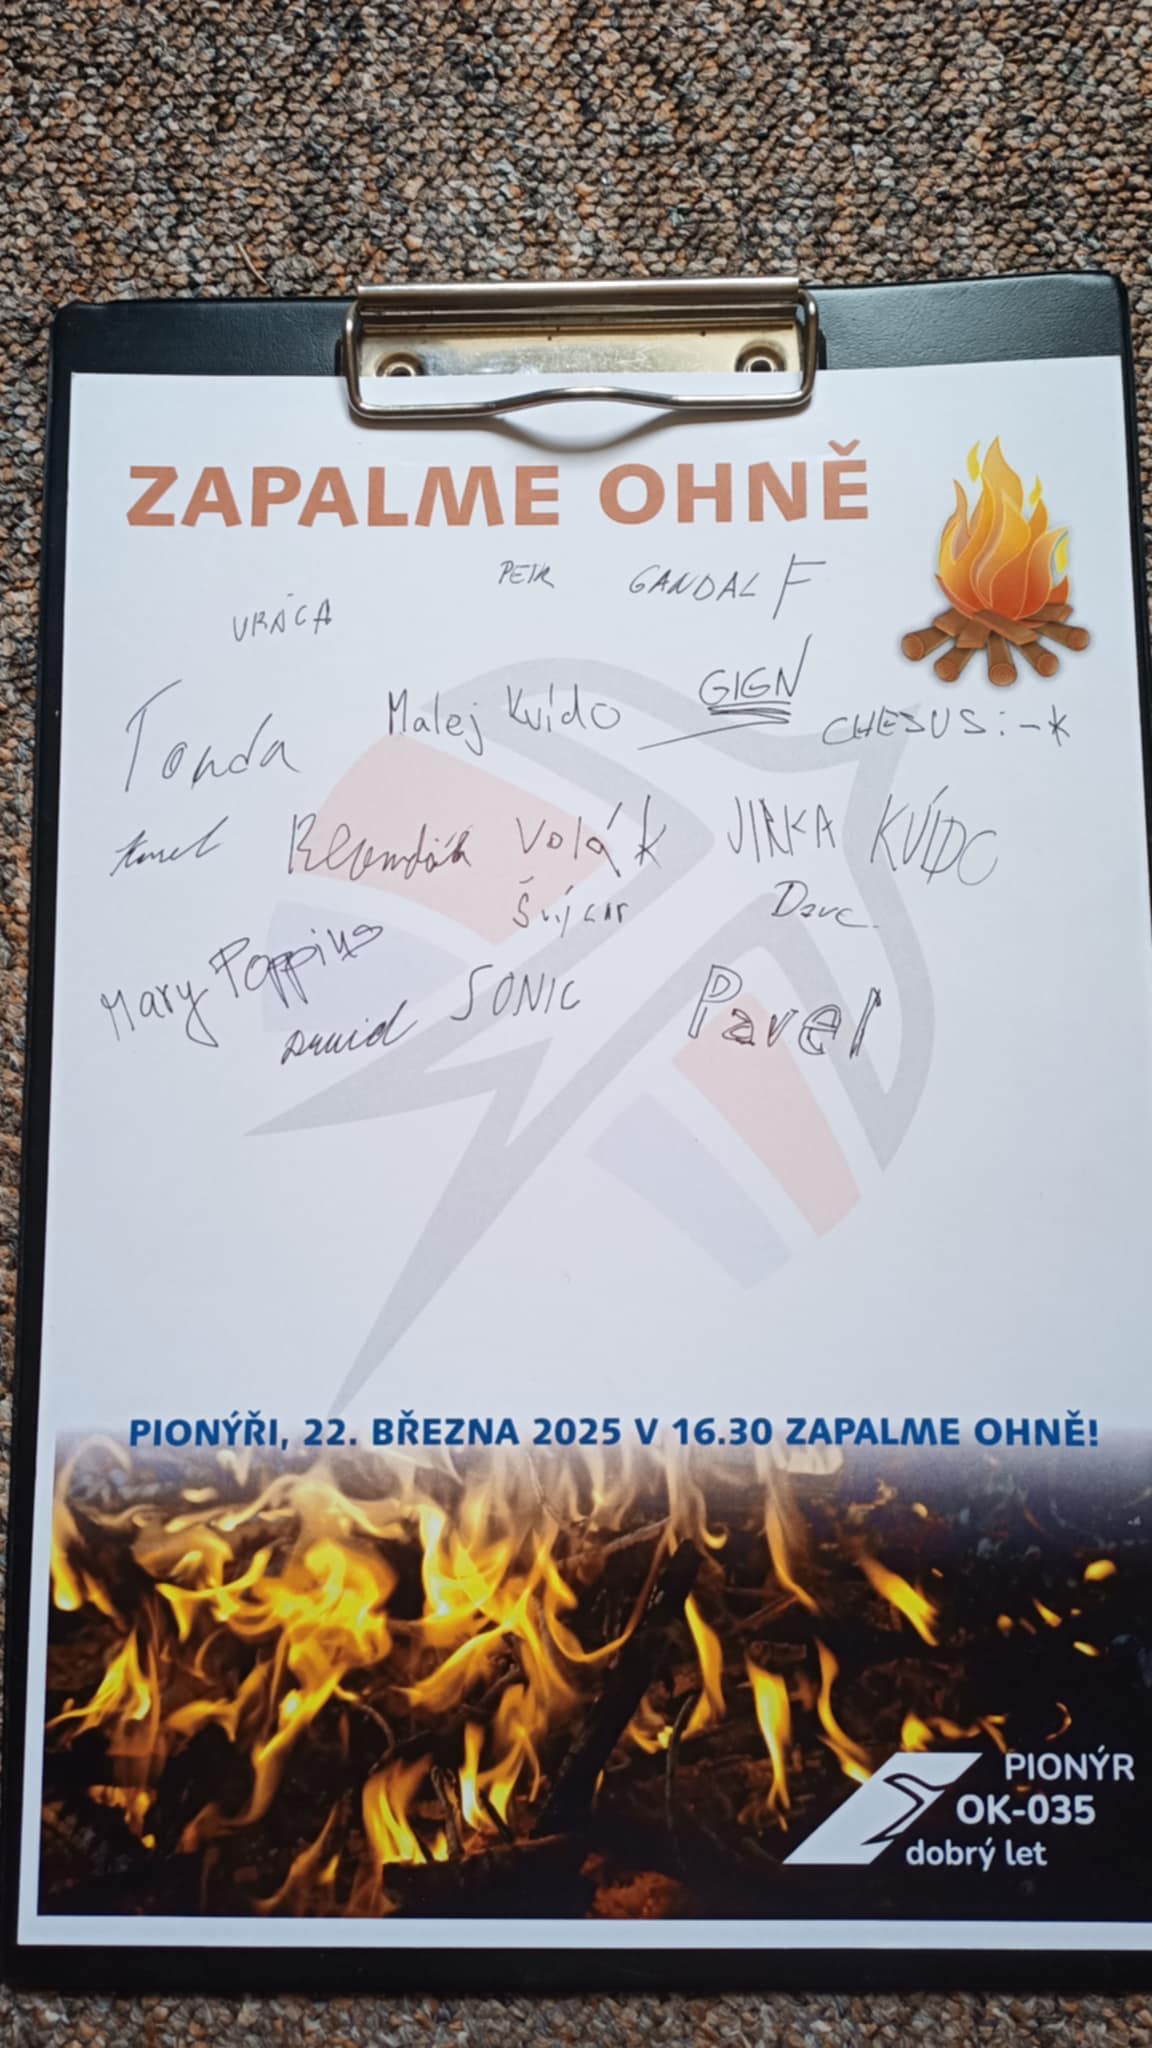 ZAPALME OHNĚ
PETR GANDALF
VRÁCA
Tonda Malej Kvído GIGN CHESUS:-K
Blonďák Volák JIRKA KVÍDO
Švýcar Dave
Mary Poppins
Druid SONIC Pavel
PIONÝŘI, 22. BŘEZNA 2025 V 16.30 ZAPALME OHNĚ!
PIONÝR
OK-035
dobrý let